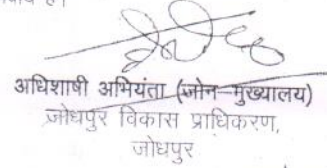 अधिशाषी अभियंता (जोन-मुख्यालय)
जोधपुर विकास प्राधिकरण,
जोधपुर